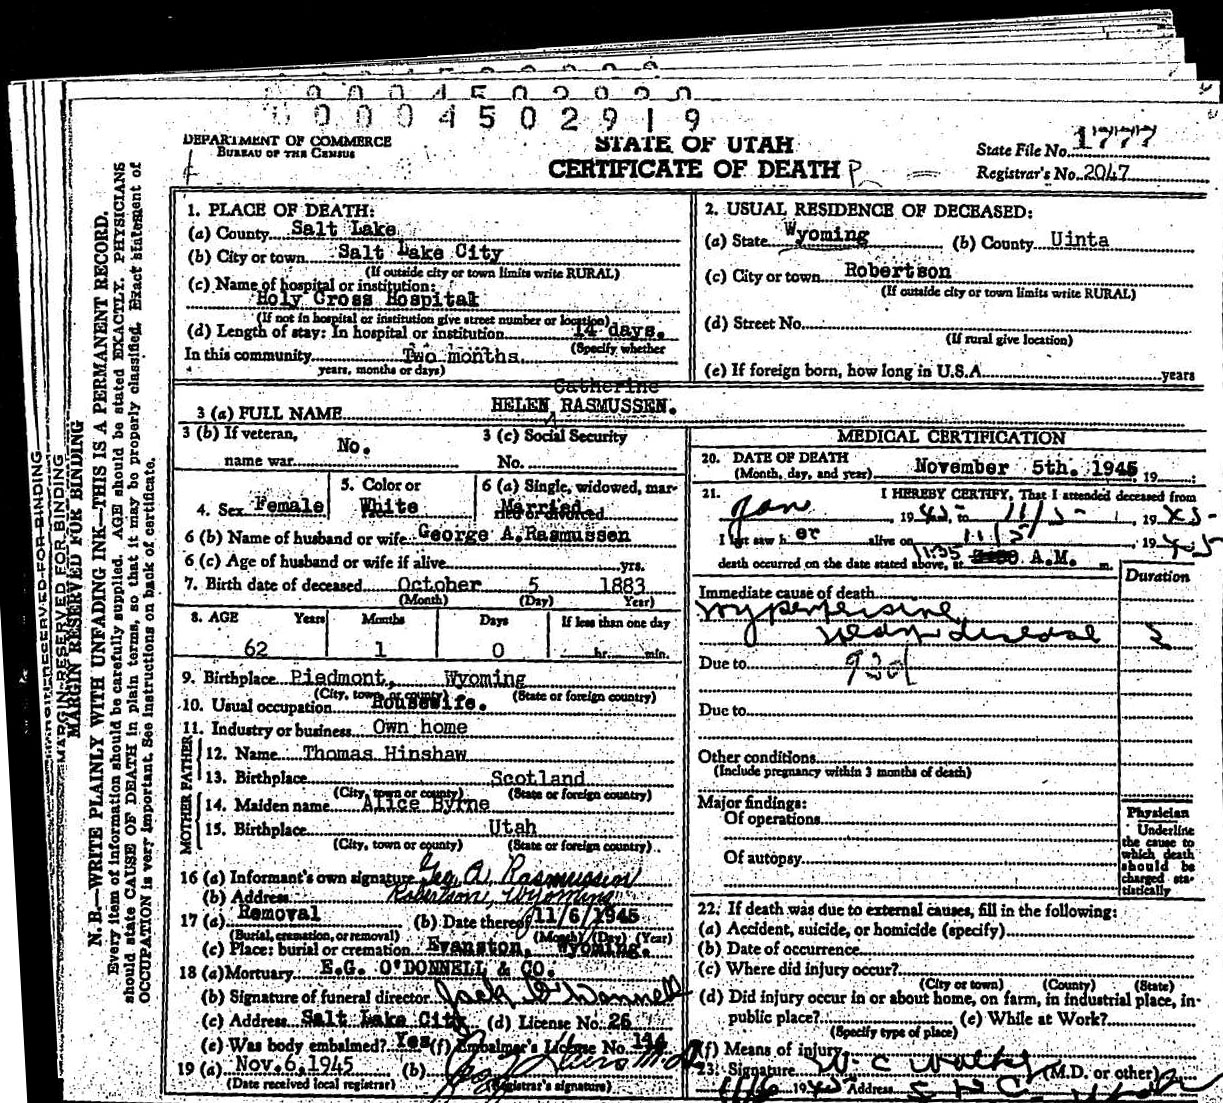 00004502919
DEPARTMENT OF COMMERCE
BUREAU OF THE CENSUS
STATE OF UTAH
CERTIFICATE OF DEATH
State File No. 1777
Registrar's No. 2047
N.B.—WRITE PLAINLY WITH UNFADING INK—THIS IS A PERMANENT RECORD.
Every item of information should be carefully supplied. AGE should be stated EXACTLY. PHYSICIANS
should state CAUSE OF DEATH in plain terms, so that it may be properly classified. Exact statement of
OCCUPATION is very important. See instructions on back of certificate.
MARGIN RESERVED FOR BINDING
1. PLACE OF DEATH:
(a) County Salt Lake
(b) City or town Salt Lake City
(If outside city or town limits write RURAL)
(c) Name of hospital or institution:
Holy Cross Hospital
(If not in hospital or institution give street number or location)
(d) Length of stay: In hospital or institution 14 days.
(Specify whether
In this community Two months.
years, months or days)
2. USUAL RESIDENCE OF DECEASED:
(a) State Wyoming (b) County Uinta
(c) City or town Robertson
(If outside city or town limits write RURAL)
(d) Street No.
(If rural give location)
(e) If foreign born, how long in U.S.A. years
Catherine
3 (a) FULL NAME HELEN RASMUSSEN.
3 (b) If veteran, name war No.
3 (c) Social Security No.
4. Sex Female
5. Color or White
6 (a) Single, widowed, mar-
Married
6 (b) Name of husband or wife George A. Rasmussen
6 (c) Age of husband or wife if alive yrs.
7. Birth date of deceased October 5 1883
(Month) (Day) Year)
8. AGE Years Months Days If less than one day
62 1 0 hr. min.
9. Birthplace Piedmont, Wyoming
(City, town or county) (State or foreign country)
10. Usual occupation Housewife.
11. Industry or business Own home
FATHER
12. Name Thomas Hinshaw
13. Birthplace Scotland
(City, town or county) (State or foreign country)
MOTHER
14. Maiden name Alice Byrne
15. Birthplace Utah
(City, town or county) (State or foreign country)
16 (a) Informant's own signature Geo A. Rasmussen
(b) Address Robertson, Wyoming
17 (a) Removal (b) Date thereof 11/6/1945
(Burial, cremation, or removal) (Month) (Day) (Year)
(c) Place: burial or cremation Evanston, Wyoming.
18 (a) Mortuary E.G. O'DONNELL & CO.
(b) Signature of funeral director Jack O'Donnell
(c) Address Salt Lake City (d) License No. 26
(e) Was body embalmed? Yes (f) Embalmer's License No.
19 (a) Nov. 6, 1945 (b)
(Date received local registrar) (Registrar's signature)
MEDICAL CERTIFICATION
20. DATE OF DEATH
(Month, day, and year) November 5th. 1945 19
21. I HEREBY CERTIFY, That I attended deceased from
Jan 1945, to 11/5 1945
I last saw her alive on 11/5 1945
death occurred on the date stated above, at 11:35 A.M. m.
Duration
Immediate cause of death
Hypertensive
heart disease
Due to
Due to
Other conditions
(Include pregnancy within 3 months of death)
Major findings:
Of operations
Of autopsy
Physician
Underline
the cause to
which death
should be
charged sta-
tistically
22. If death was due to external causes, fill in the following:
(a) Accident, suicide, or homicide (specify)
(b) Date of occurrence
(c) Where did injury occur?
(City or town) (County) (State)
(d) Did injury occur in or about home, on farm, in industrial place, in
public place? (e) While at Work?
(Specify type of place)
(f) Means of injury
23. Signature (M.D. or other)
11/6 1945 Address